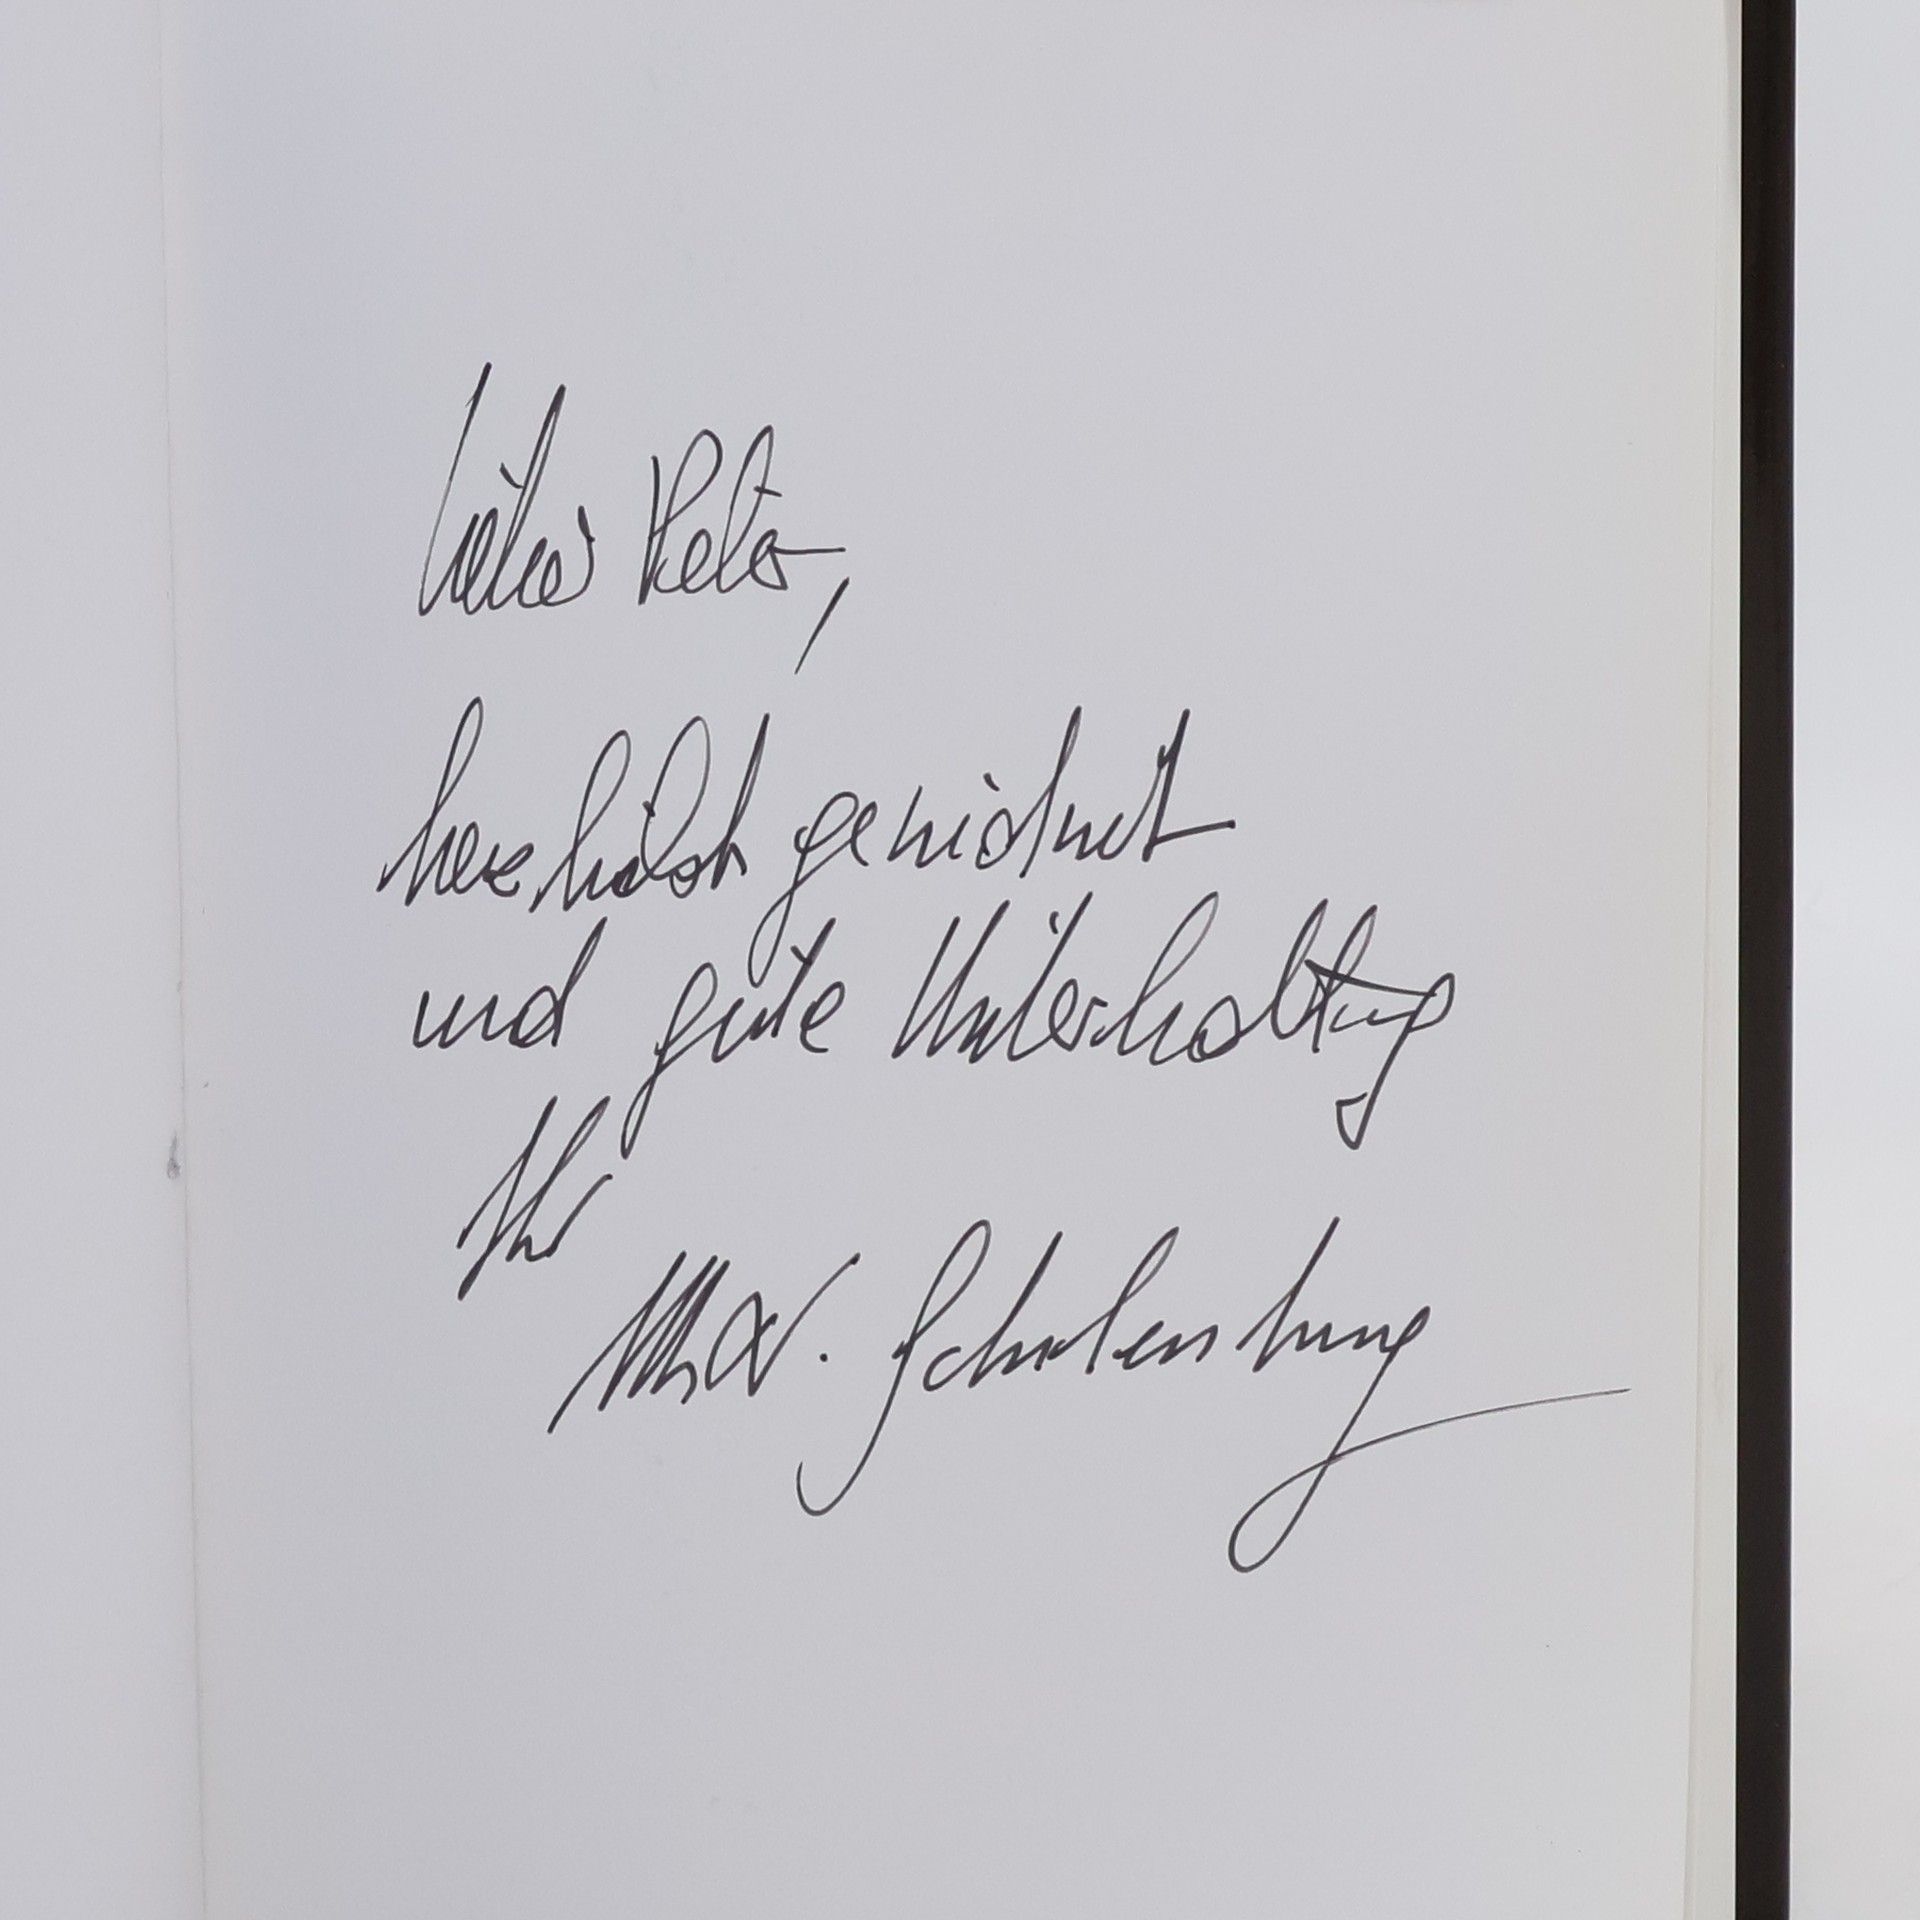 Lieber Reto,
herzlichst gewidmet
und gute Unterhaltung
Ihr
M. v. Schulenburg